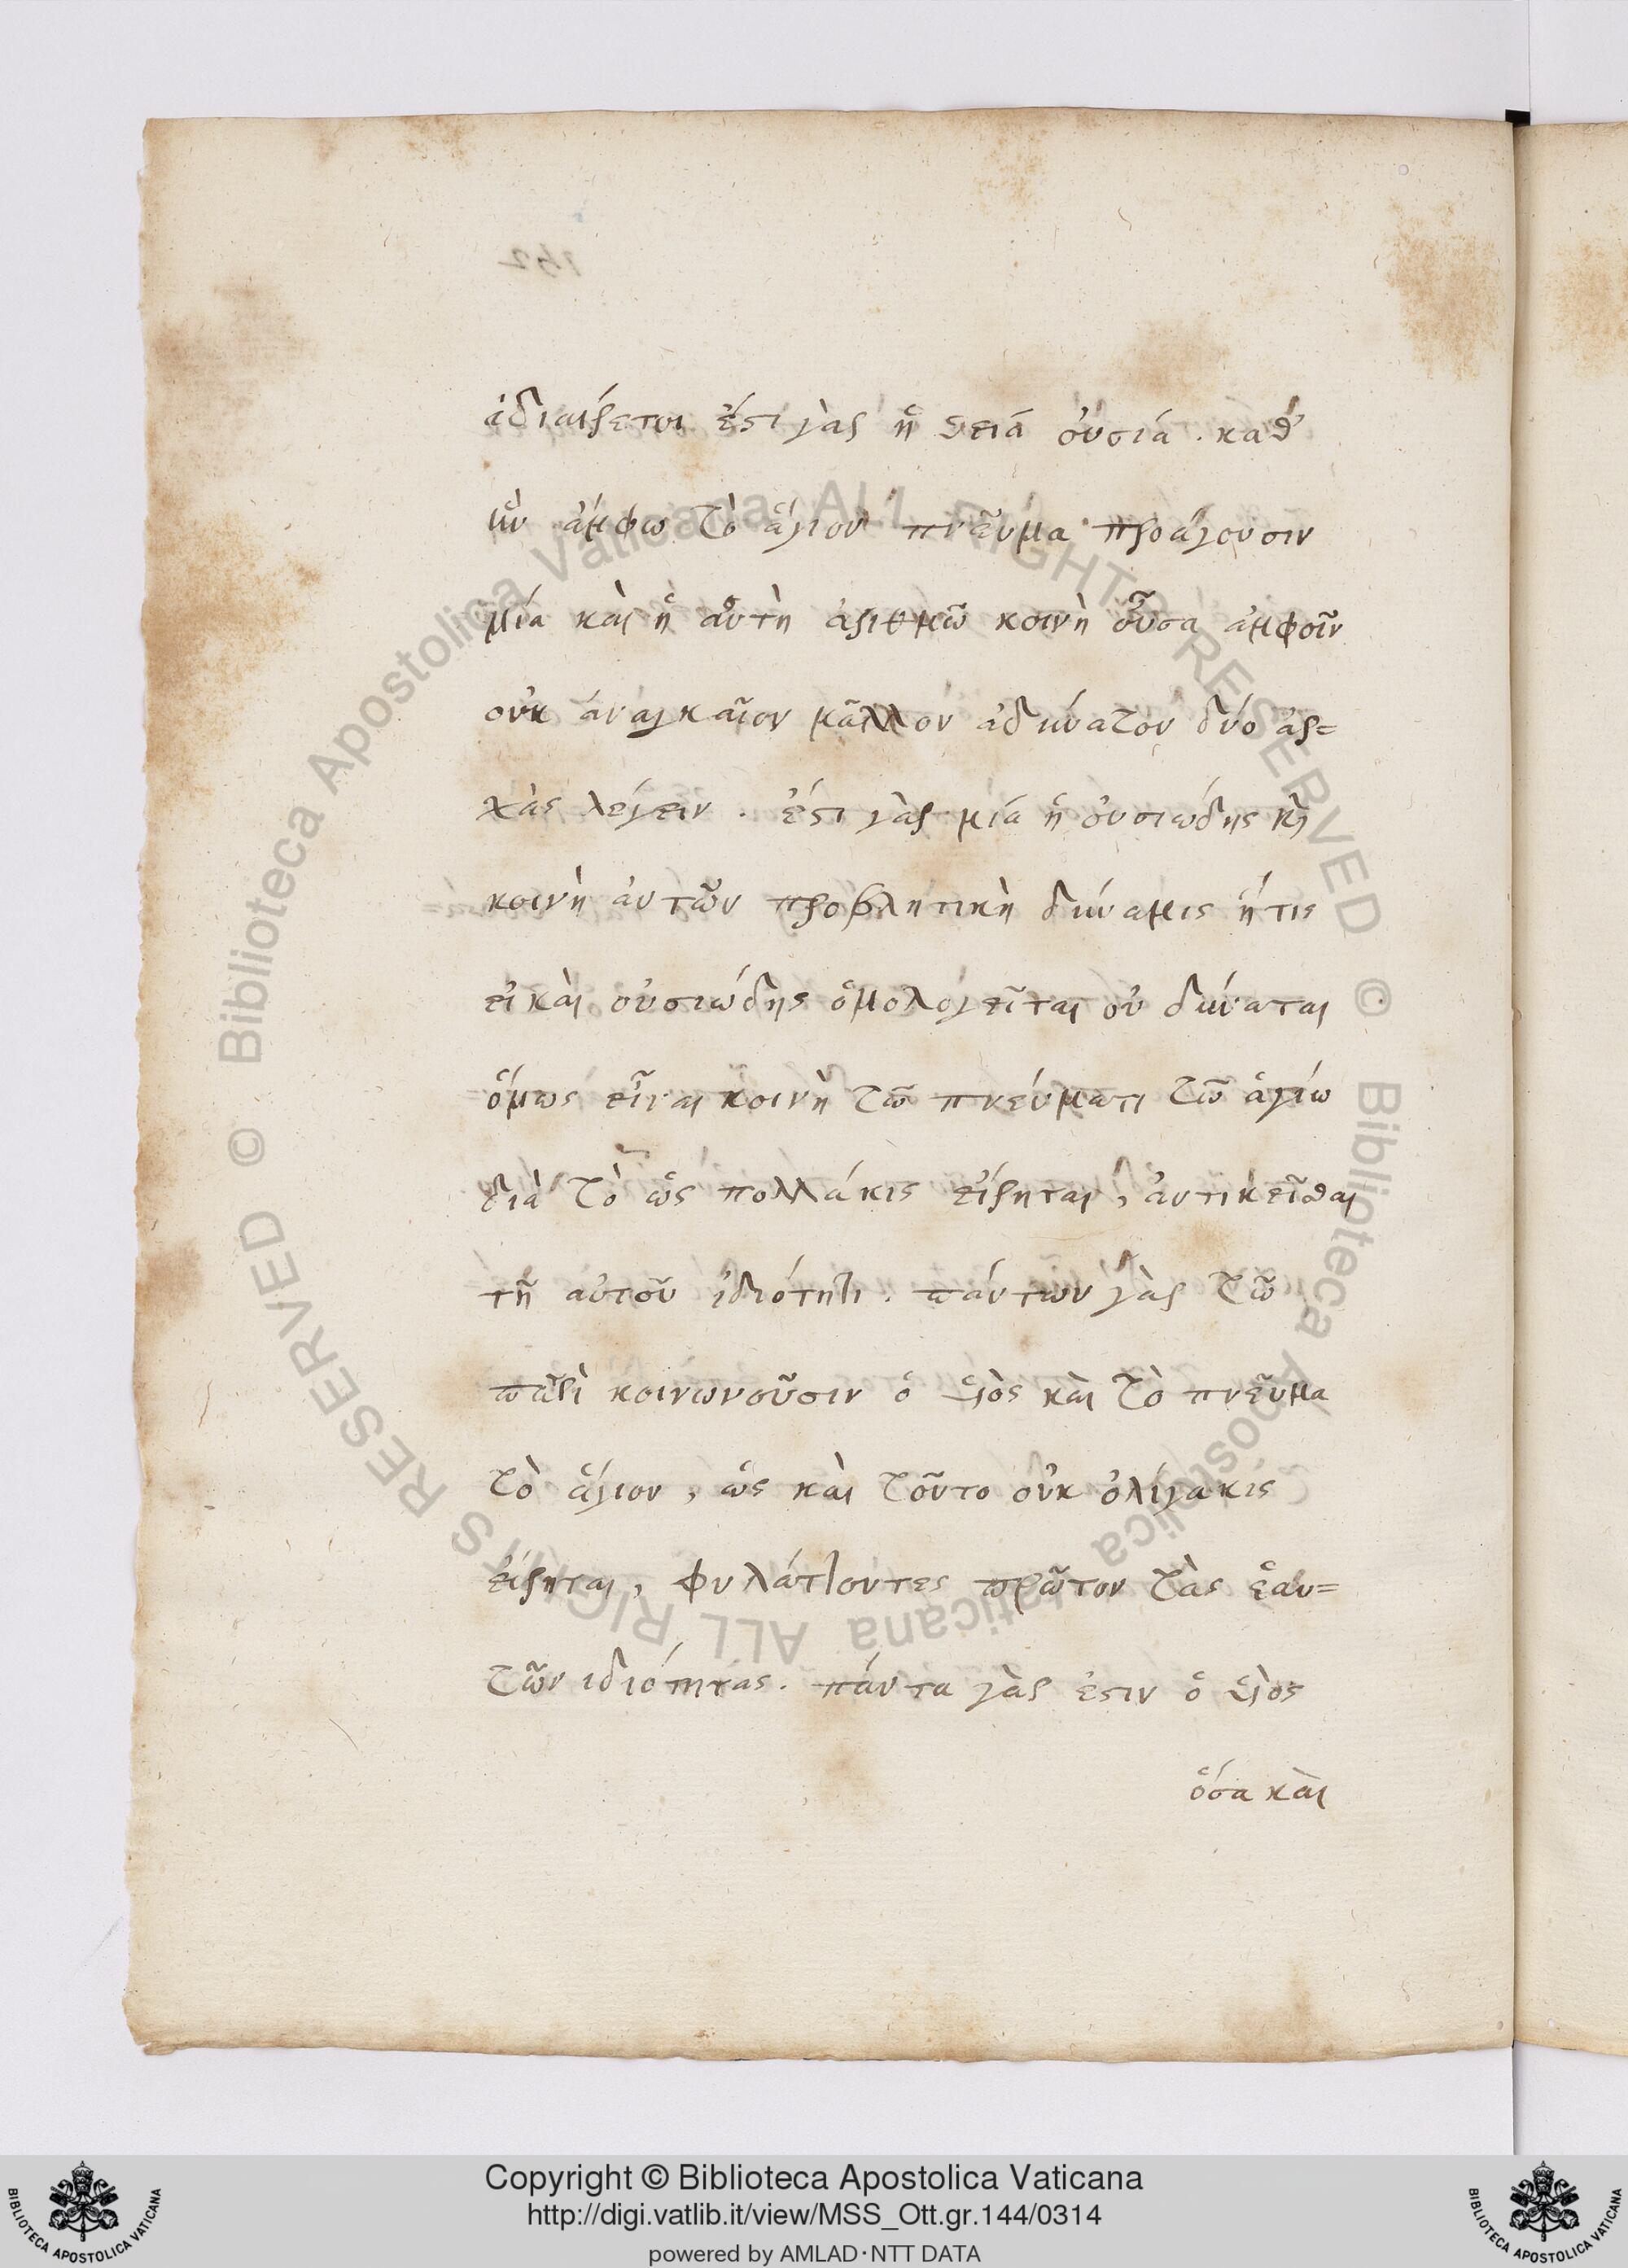 ἀδιαίρετοι ἐστὶ γὰρ ἡ θεία οὐσία. καθ'
ἣν ἄμφω τὸ ἅγιον πνεῦμα προάγουσιν
μία καὶ ἡ αὐτὴ ἀριθμῶ κοινὴ οὖσα ἀμφοῖν
οὐκ ἀναγκαῖον μᾶλλον ἀδύνατον δύο ἀρ=
χὰς λέγειν. ἐστι γὰρ μία ἡ οὐσιώδης καὶ
κοινὴ ἀυτῶν προβλητικὴ δύναμις ἥτις
εἰ καὶ οὐσιώδης ὁμολογεῖται οὐ δύναται
ὅμως εἶναι κοινὴ τῶ πνεύματι τῶ ἁγίω
διὰ τὸ ὡς πολλάκις εἴρηται, ἀντικεῖσθαι
τῆ αὐτοῦ ἰδιότητι. πάντων γὰρ τῶ
πατρὶ κοινωνοῦσιν ὁ υἱὸς καὶ τὸ πνεῦμα
τὸ ἅγιον, ὡς καὶ τοῦτο οὐκ ὀλίγακις
εἴρηται, φυλάττοντες πρῶτον τὰς ἑαυ=
τῶν ἰδιότητας. πάντα γὰρ ἐστιν ὁ υἱὸς
ὅσα καὶ
Copyright © Biblioteca Apostolica Vaticana
http://digi.vatlib.it/view/MSS_Ott.gr.144/0314
powered by AMLAD·NTT DATA
BIBLIOTECA APOSTOLICA VATICANA
BIBLIOTECA APOSTOLICA VATICANA
© Biblioteca Apostolica Vaticana ALL RIGHTS RESERVED
© Biblioteca Apostolica Vaticana ALL RIGHTS RESERVED